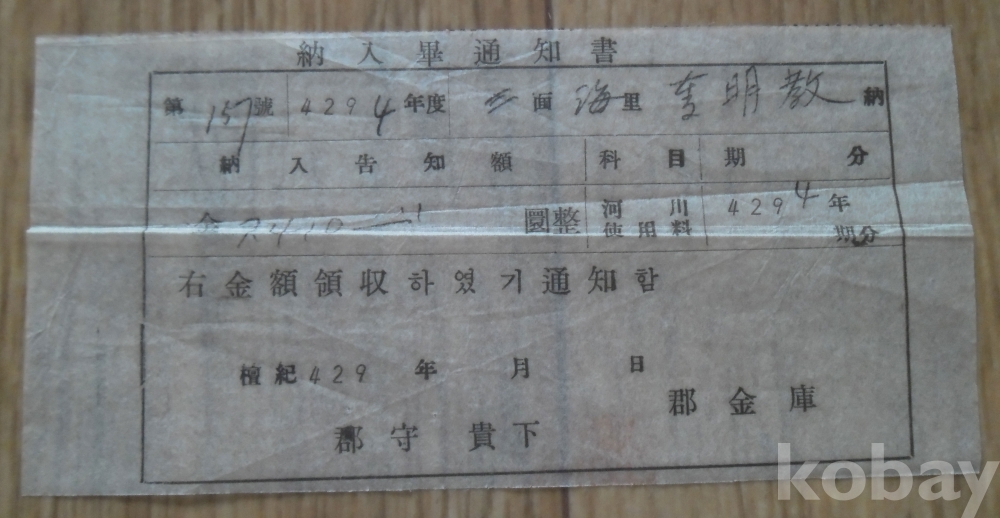 納入畢通知書
第157號 4294年度 面 海里 明敎 納
納入告知額 科目 期分
金 圜整 河川使用料 4294年 期分
右金額領収하였기通知함
檀紀429 年 月 日
郡金庫
郡守 貴下
kobay